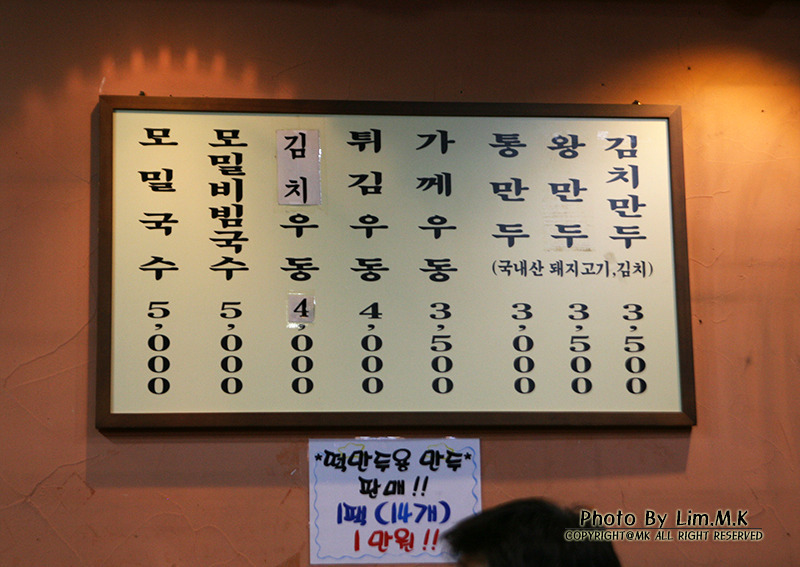 모밀국수 5,000
모밀비빔국수 5,000
김치우동 4,000
튀김우동 4,000
가께우동 3,500
통만두 3,000
왕만두 3,500
김치만두 3,500
(국내산 돼지고기,김치)
*떡만두용 만두*
판매!!
1팩 (14개)
1만원!!
Photo By Lim.M.K
COPYRIGHT@MK ALL RIGHT RESERVED